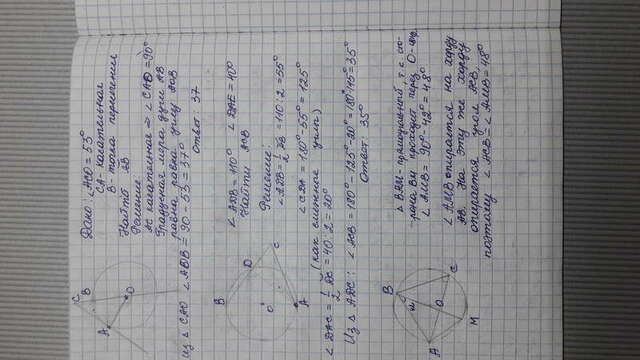 C
B
A
O
Дано: ∠ACO = 53°
CA - касательная
B - точка пересечения
Найти AB
Решение:
AC касательная ⇒ ∠CAO = 90°
Градусная мера дуги AB
равна равна углу AOB
Из △ CAO ∠AOB = 90 - 53 = 37°
Ответ: 37
B
D
O
C
A
∠ADB = 110° ∠DAE = 40°
Найти ACB
Решение:
∠ADB = 1/2 ᴗB = 110 : 2 = 55°
∠CDA = 180° - 55° = 125°
(как смежные углы)
∠DAC = 1/2 DC = 40 : 2 = 20°
Из △ ADC : ∠ACB = 180° - 125° - 20° = 180° 145° = 35°
Ответ: 35°
B
A
O
C
M
△ BAM - прямоугольный, т.к. сто-
рона BM проходит через O -
∠AMB = 90° - 42° = 48°
∠AMB опирается на хорду
AB. На эту же хорду
опирается угол ACB,
поэтому ∠ACB = ∠AMB = 48°